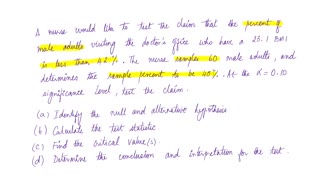 A nurse would like to test the claim that the percent of
male adults visiting the doctor's office who have a 25.1 BMI
is less than 42%. The nurse samples 60 male adults, and
determines the sample percent to be 40%. At the α = 0.10
significance level, test the claim.
(a) Identify the null and alternative hypothesis
(b) Calculate the test statistic
(c) Find the critical value/(s)
(d) Determine the conclusion and interpretation for the test.